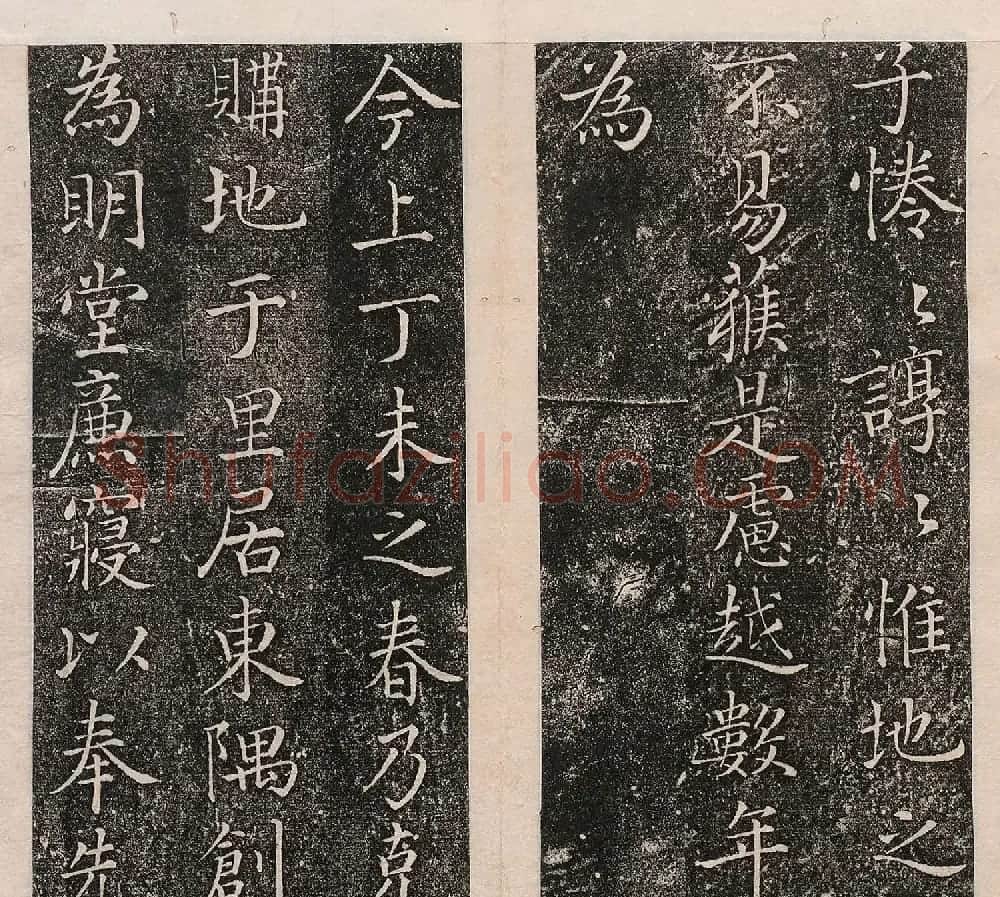 子惓〻諄〻惟地之
不易蒦是慮越數年
為
今上丁未之春乃克
購地于里居東隅創
為明堂廉寢以奉先
Shufaziliao.COM